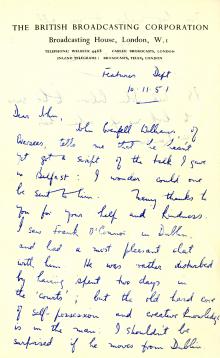 THE BRITISH BROADCASTING CORPORATION
Broadcasting House, London, W.1
TELEPHONE: WELBECK 4468 CABLES: BROADCASTS, LONDON
INLAND TELEGRAMS: BROADCASTS, TELEX, LONDON
Features Dept
10.11.51
Dear John,
John Grenfell Williams, of
Overseas, tells me that he hasn't
yet got a script of the talk I gave
in Belfast: I wonder could one
be sent to him. Many thanks to
you for your help and kindness.
I saw Frank O'Connor in Dublin,
and had a most pleasant chat
with him. He was rather disturbed
by having spent two days in
the 'courts'; but the old hard core
of self-possession and creative knowledge
is in the man. I shouldn't be
surprised if he moves from Dublin